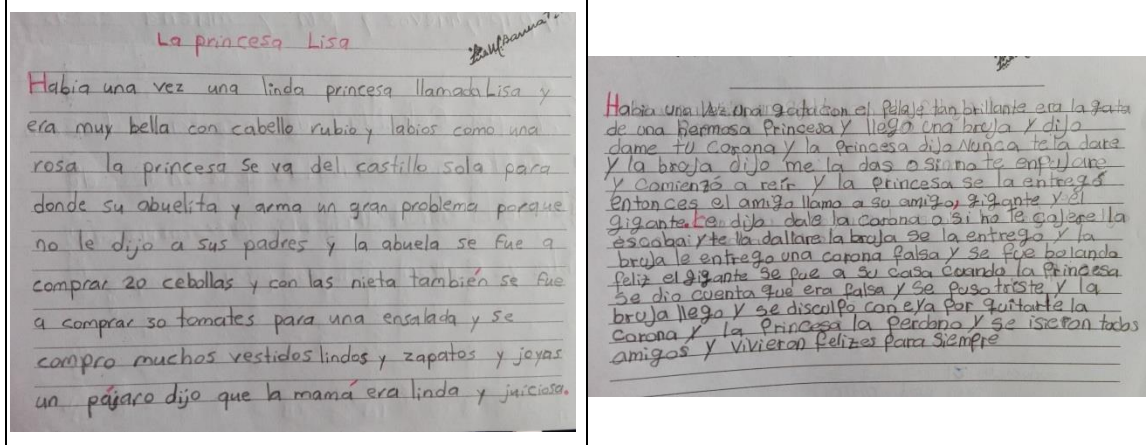 La princesa Lisa
Había una vez una linda princesa llamada Lisa y
era muy bella con cabello rubio y labios como una
rosa la princesa se va del castillo sola para
donde su abuelita y arma un gran problema porque
no le dijo a sus padres y la abuela se fue a
comprar 20 cebollas y con las nieta también se fue
a comprar 30 tomates para una ensalada y se
compro muchos vestidos lindos y zapatos y joyas
un pájaro dijo que la mamá era linda y juiciosa.
Habia una vez una gata con el pelaje tan brillante era la gata
de una hermosa Princesa y llego una bruja y dijo
dame tu corona y la princesa dijo Nunca te la dare
y la broja dijo me la das o sinno te
y comienzó a reír y la princesa se la entregó
entonces el amigo llamo a su amigo, gigante y el
gigante. le dijo dale la corona o si no te la
escoba y te la la bruja se la entrego y la
bruja le entrego una corona falsa y se fue bolando
feliz el gigante se fue a su casa cuando la princesa
se dio cuenta que era falsa y se puso triste y la
bruja llego y se disculpó con eya por quitarle la
corona y la princesa la perdono y se isieron todos
amigos y vivieron felizes para siempre